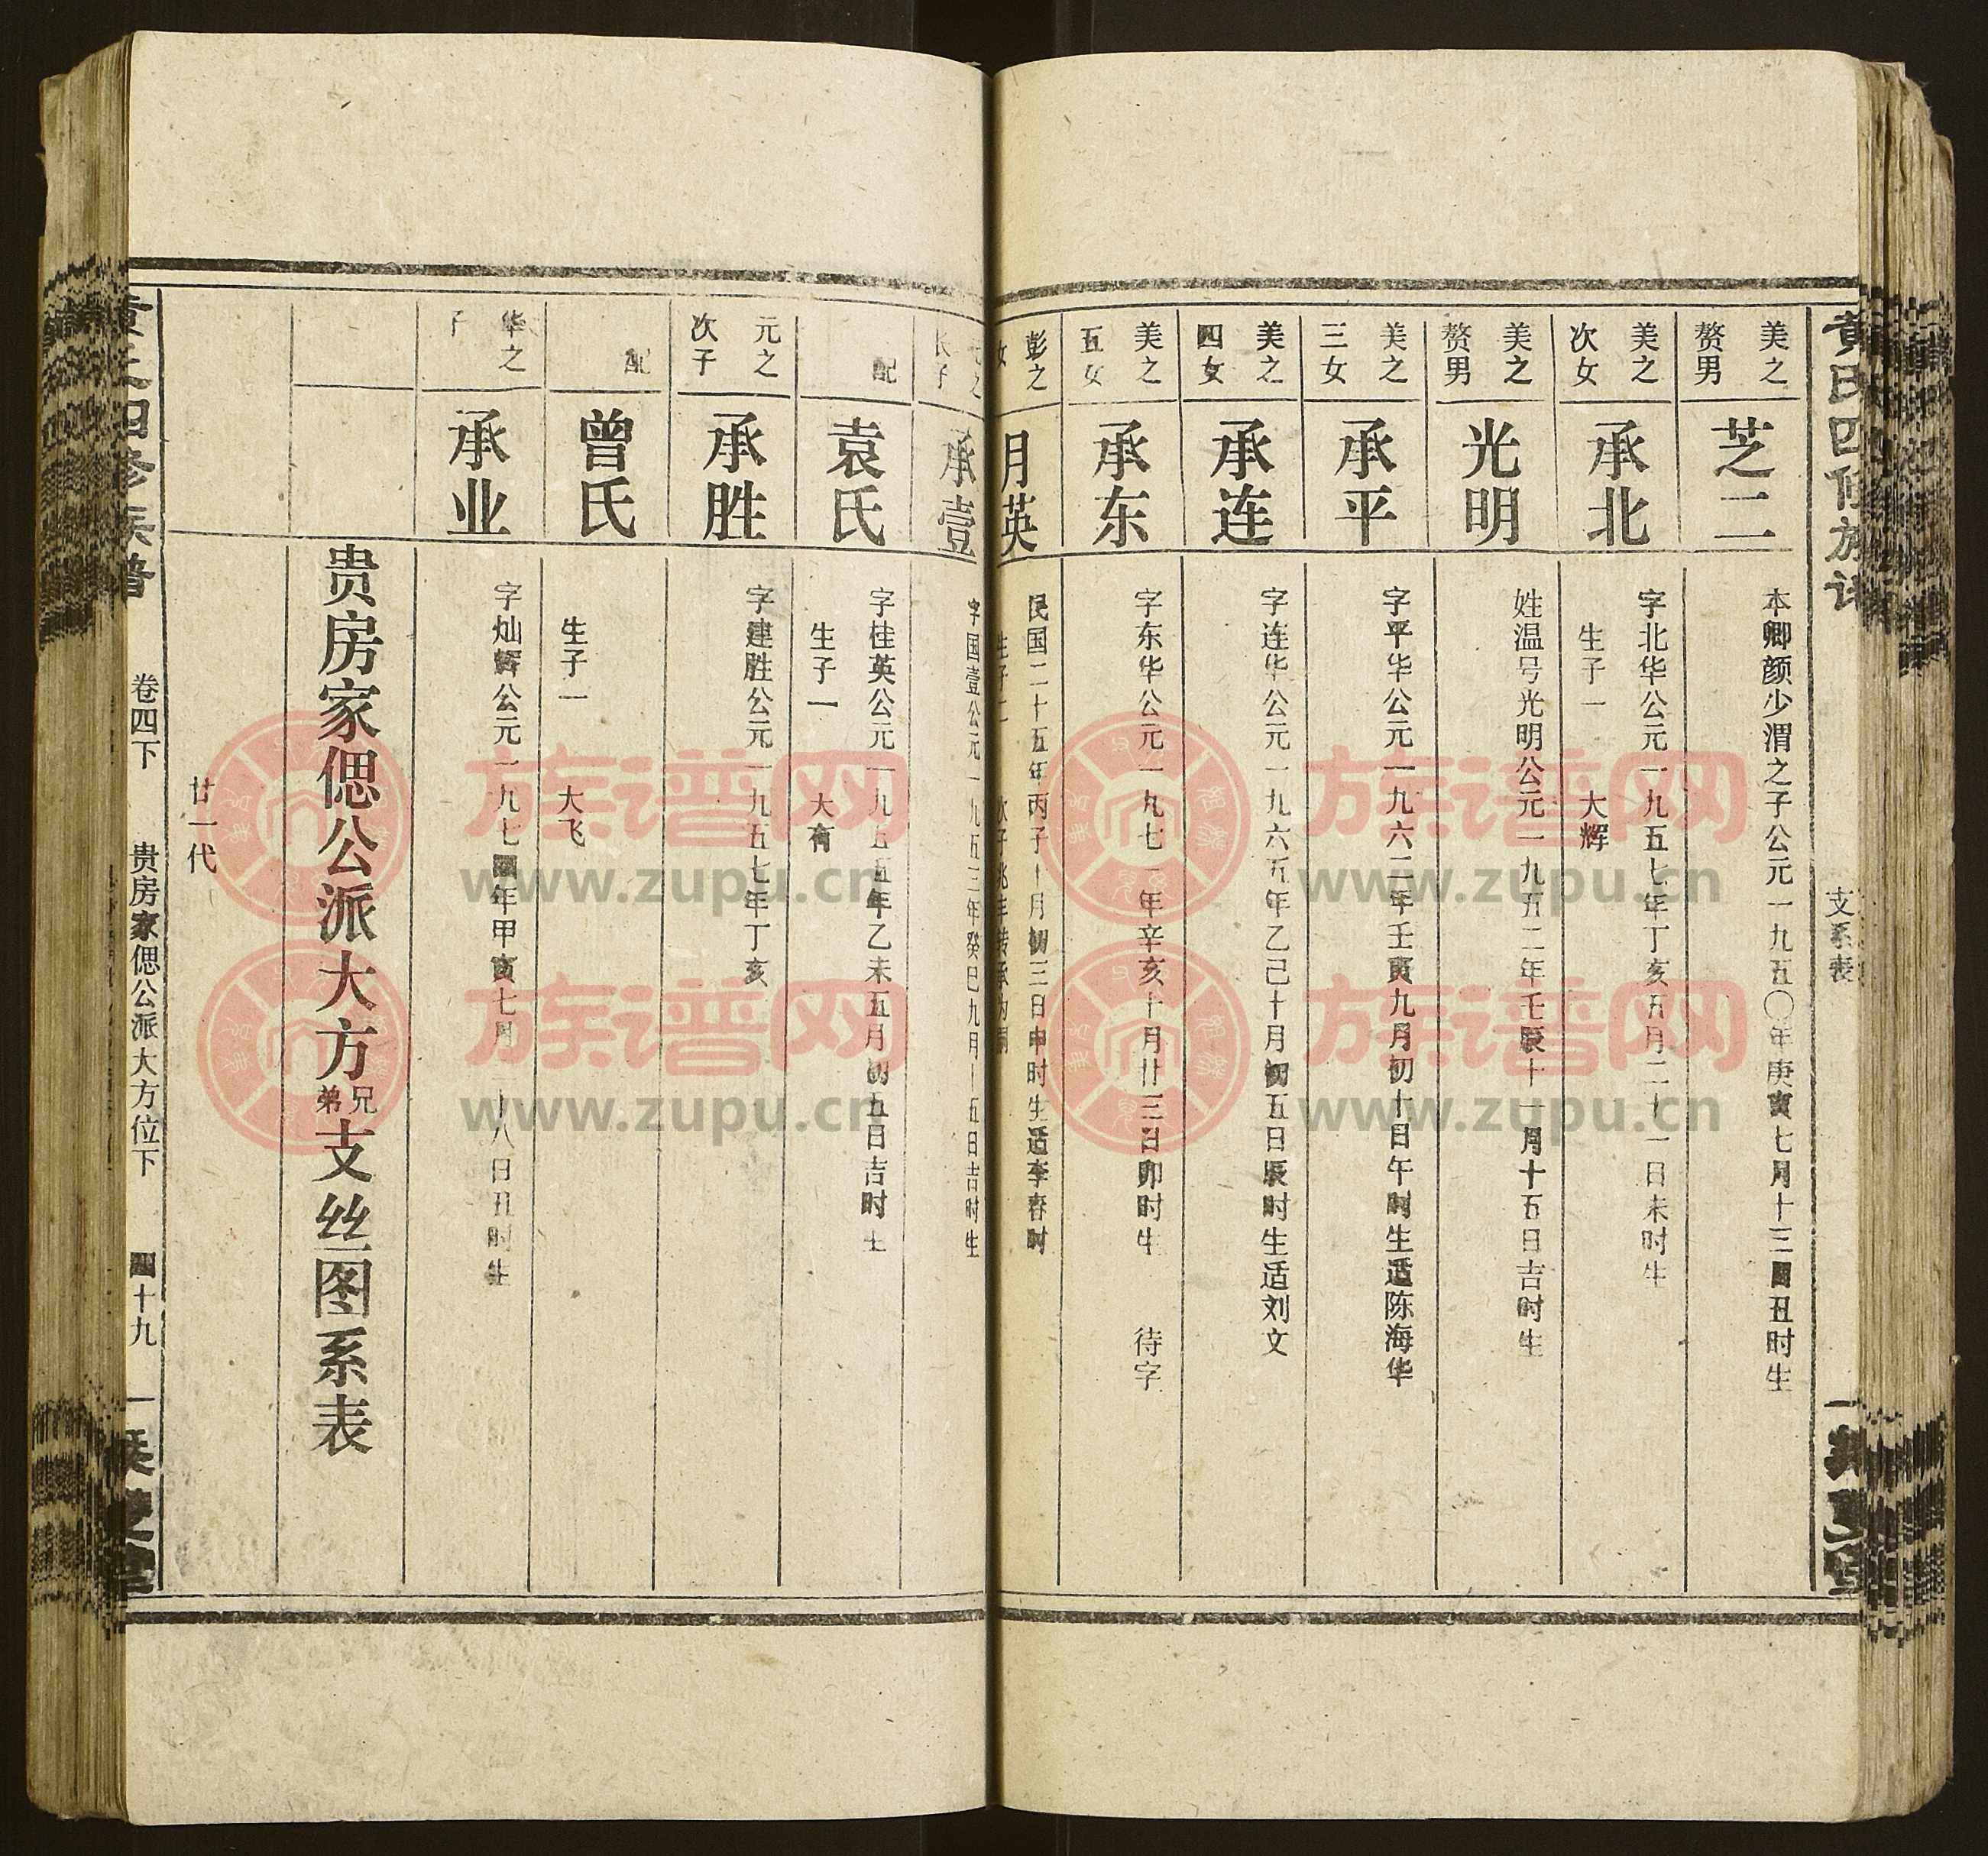 黄氏四修族谱
支系表
美之
赘男
芝二
本卿颜少渭之子公元一九五〇年庚寅七月十三日丑时生
美之
次女
承北
字北华公元一九五七年丁亥五月二十一日未时生
生子一 大辉
美之
赘男
光明
姓温号光明公元一九五二年壬辰十一月十五日吉时生
美之
三女
承平
字平华公元一九六二年壬寅九月初十日午时生适陈海华
美之
四女
承连
字连华公元一九六五年乙己十月初五日辰时生适刘文
美之
五女
承东
字东华公元一九七一年辛亥十月廿三日卯时生 待字
彭之
女
月英
民国二十五年丙子十月初三日申时生适李春时
生子二 次子兆丰转承为嗣
元之
长子
承壹
字国壹公元一九五三年癸巳九月十五日吉时生
配
袁氏
字桂英公元一九五五年乙未五月初五日吉时生
生子一 大有
元之
次子
承胜
字建胜公元一九五七年丁亥
配
曾氏
生子一 大飞
华之
子
承业
字灿辉公元一九七四年甲寅七月二十八日丑时生
贵房家偲公派大方兄弟支丝图系表
廿一代
黄氏四修族谱
卷四下
贵房家偲公派大方位下
四十九
族谱网
www.zupu.cn
族谱网
www.zupu.cn
族谱网
www.zupu.cn
族谱网
www.zupu.cn